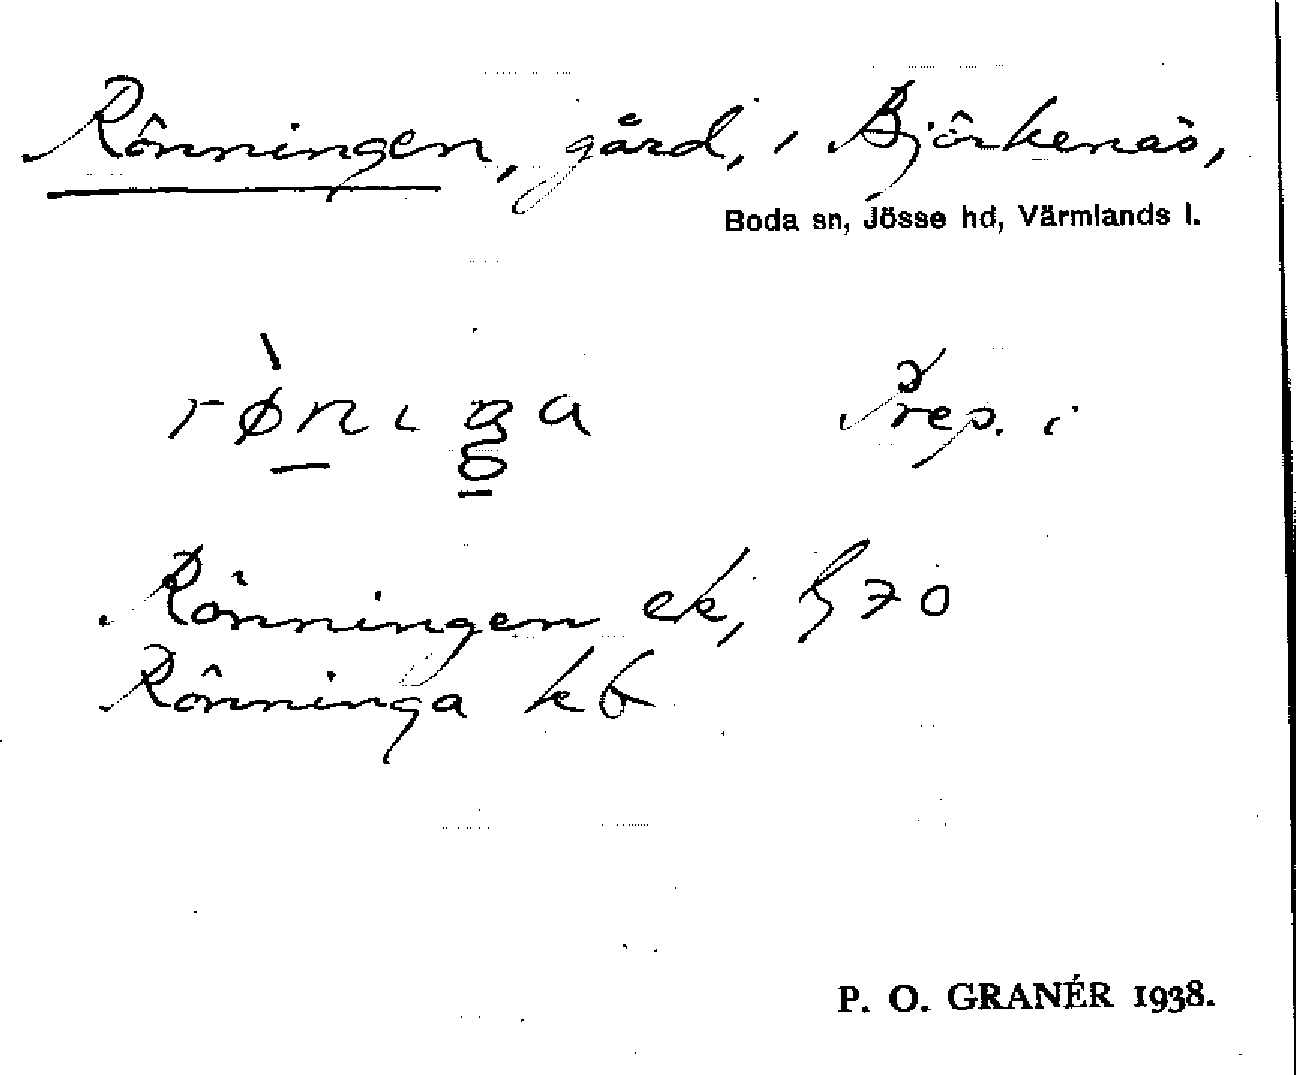 Rönningen, gård, i Björkenäs,
Boda sn, Jösse hd, Värmlands l.
Prep. i
Rönningen ek, 
Rönninga kb
P. O. GRANÉR 1938.